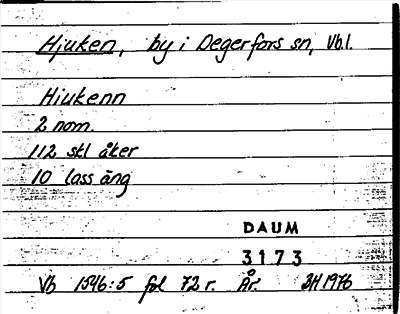 Hjuken, by i Degerfors sn, Vb.l.
Hiukenn
2 nom.
112 skl åker
10 lass äng
DAUM
3173
Vb 1546:5 fol 72 r. År. BH 1976